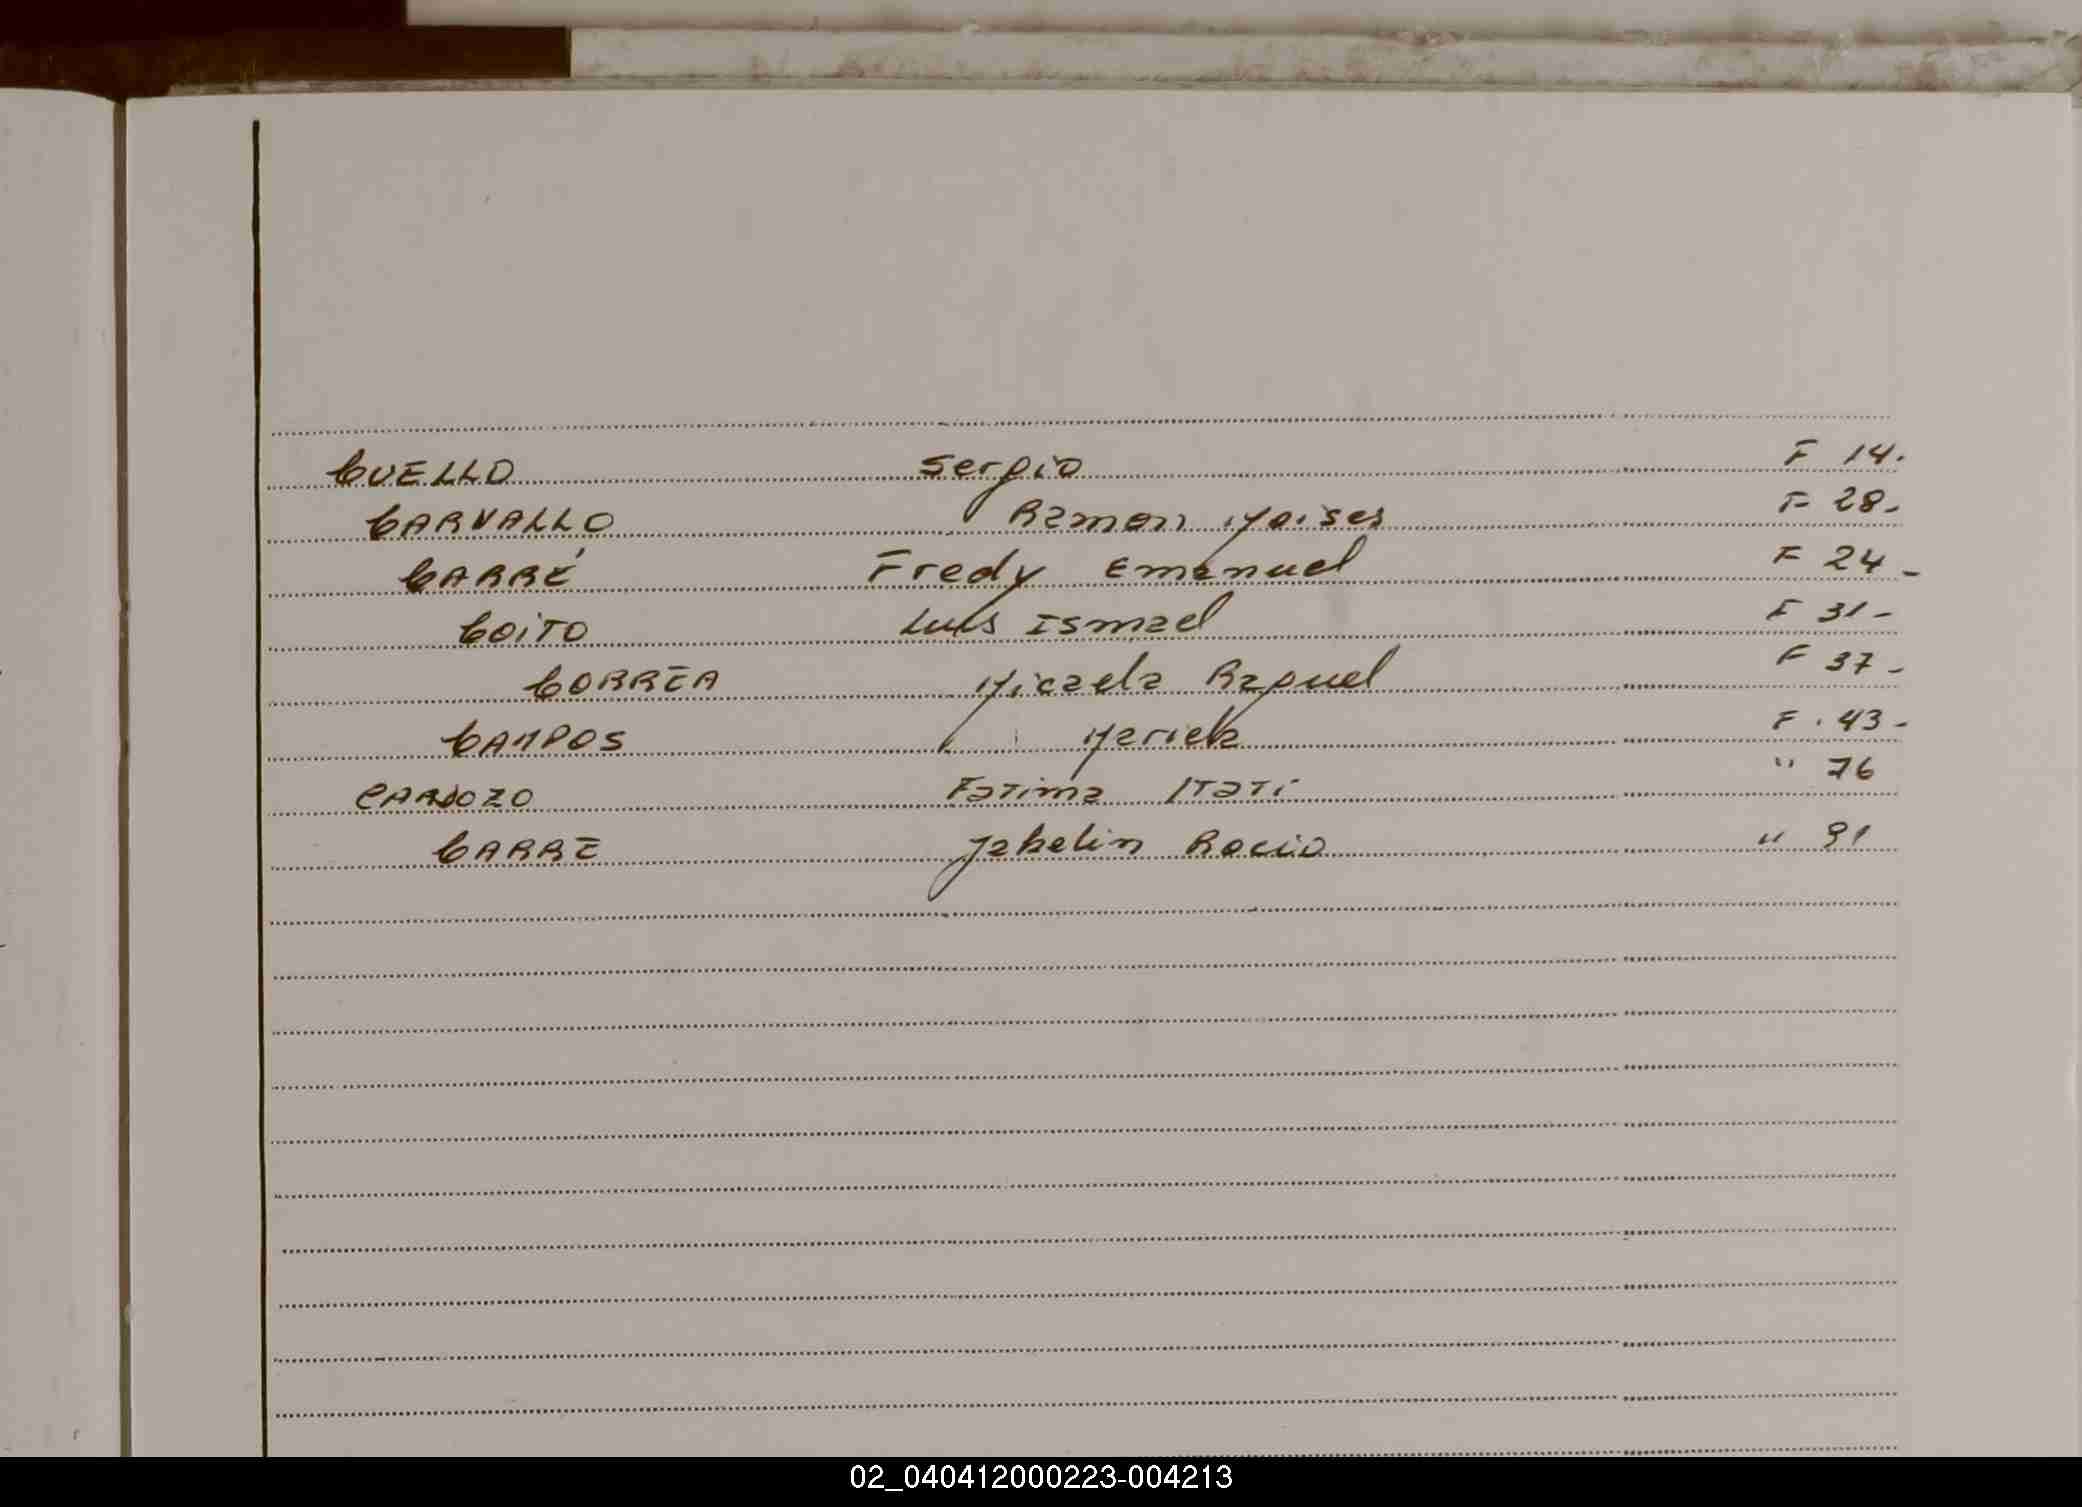 CUELLO Sergio F 14.
CARVALLO Ramon Moises F 28-
CARRÉ Fredy Emanuel F 24-
COITO Luis Ismael F 31-
CORREA Micaela Raquel F 37-
CAMPOS Mariela F. 43-
CARDOZO Fatima Itati " 76
CARRE Jakelin Rocio " 91
02_040412000223-004213